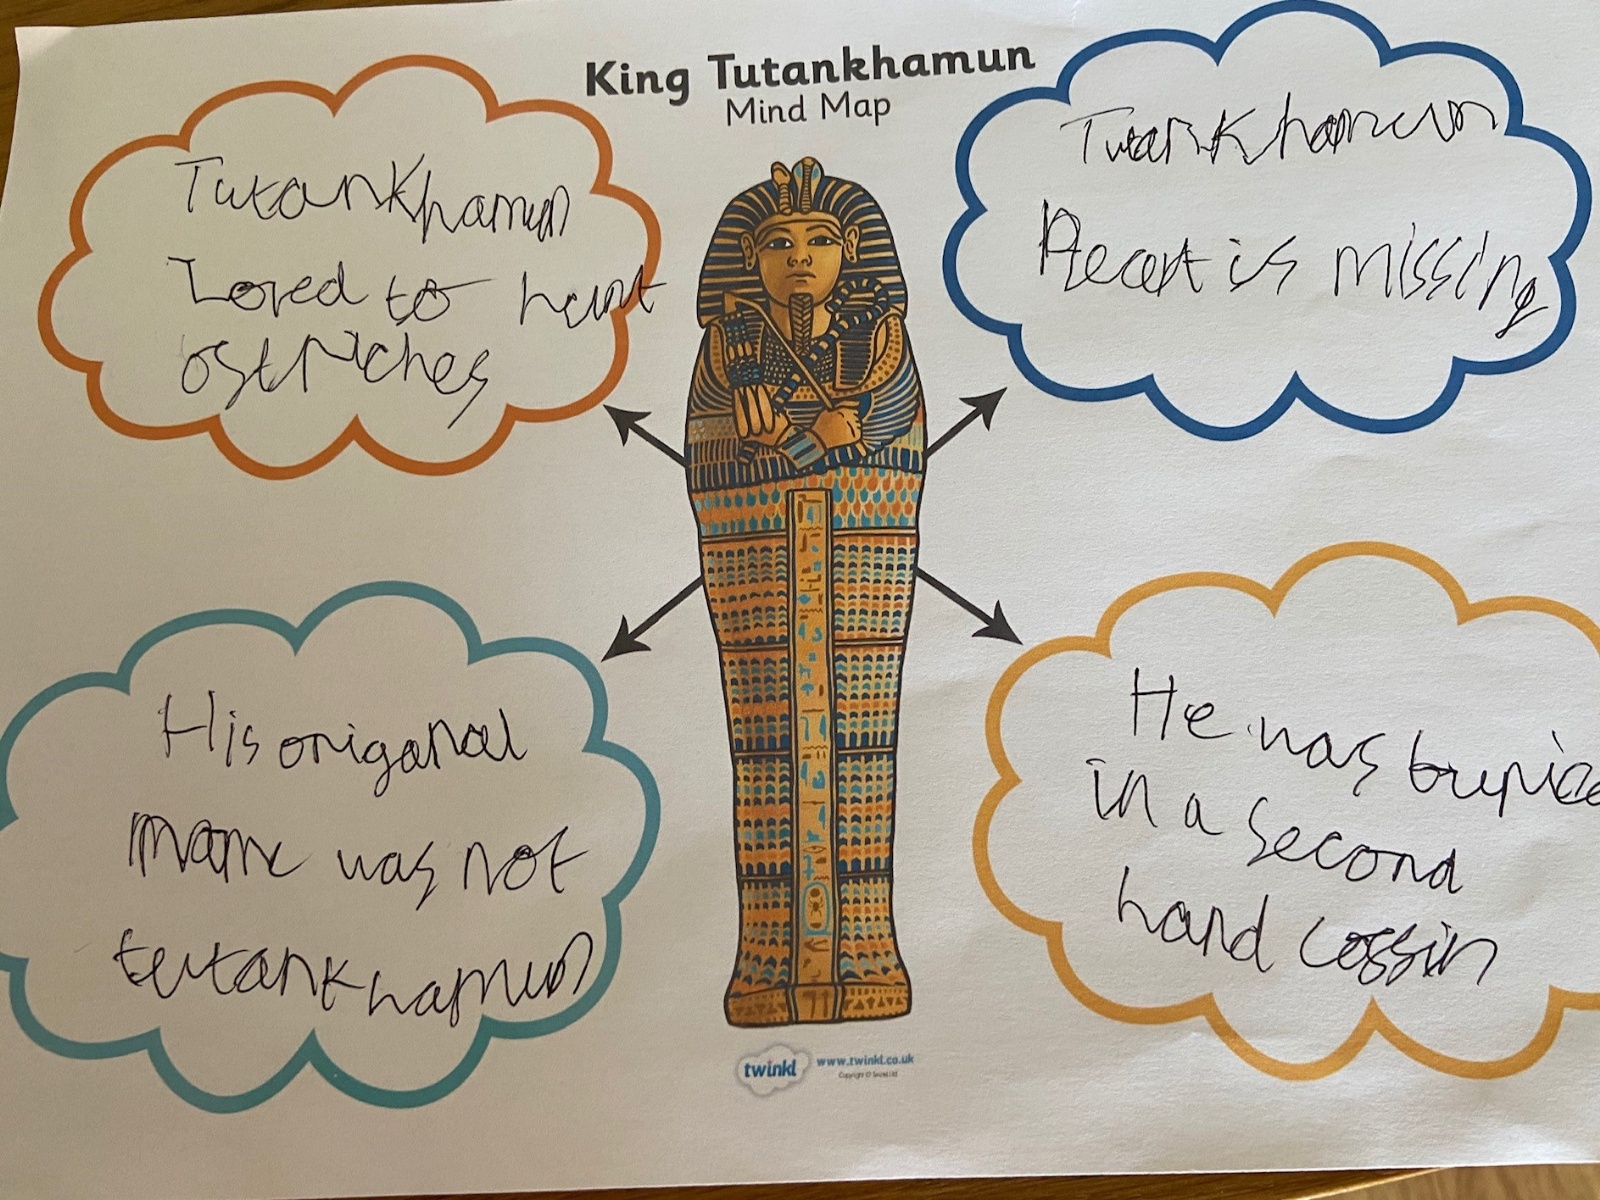 King Tutankhamun
Mind Map
Tutankhamun
Loved to hunt
ostriches
Tutankhamun
Heart is missing
His origanal
name was not
tutankhamun
He was burie
in a second
hand coffin
twinkl
www.twinkl.co.uk